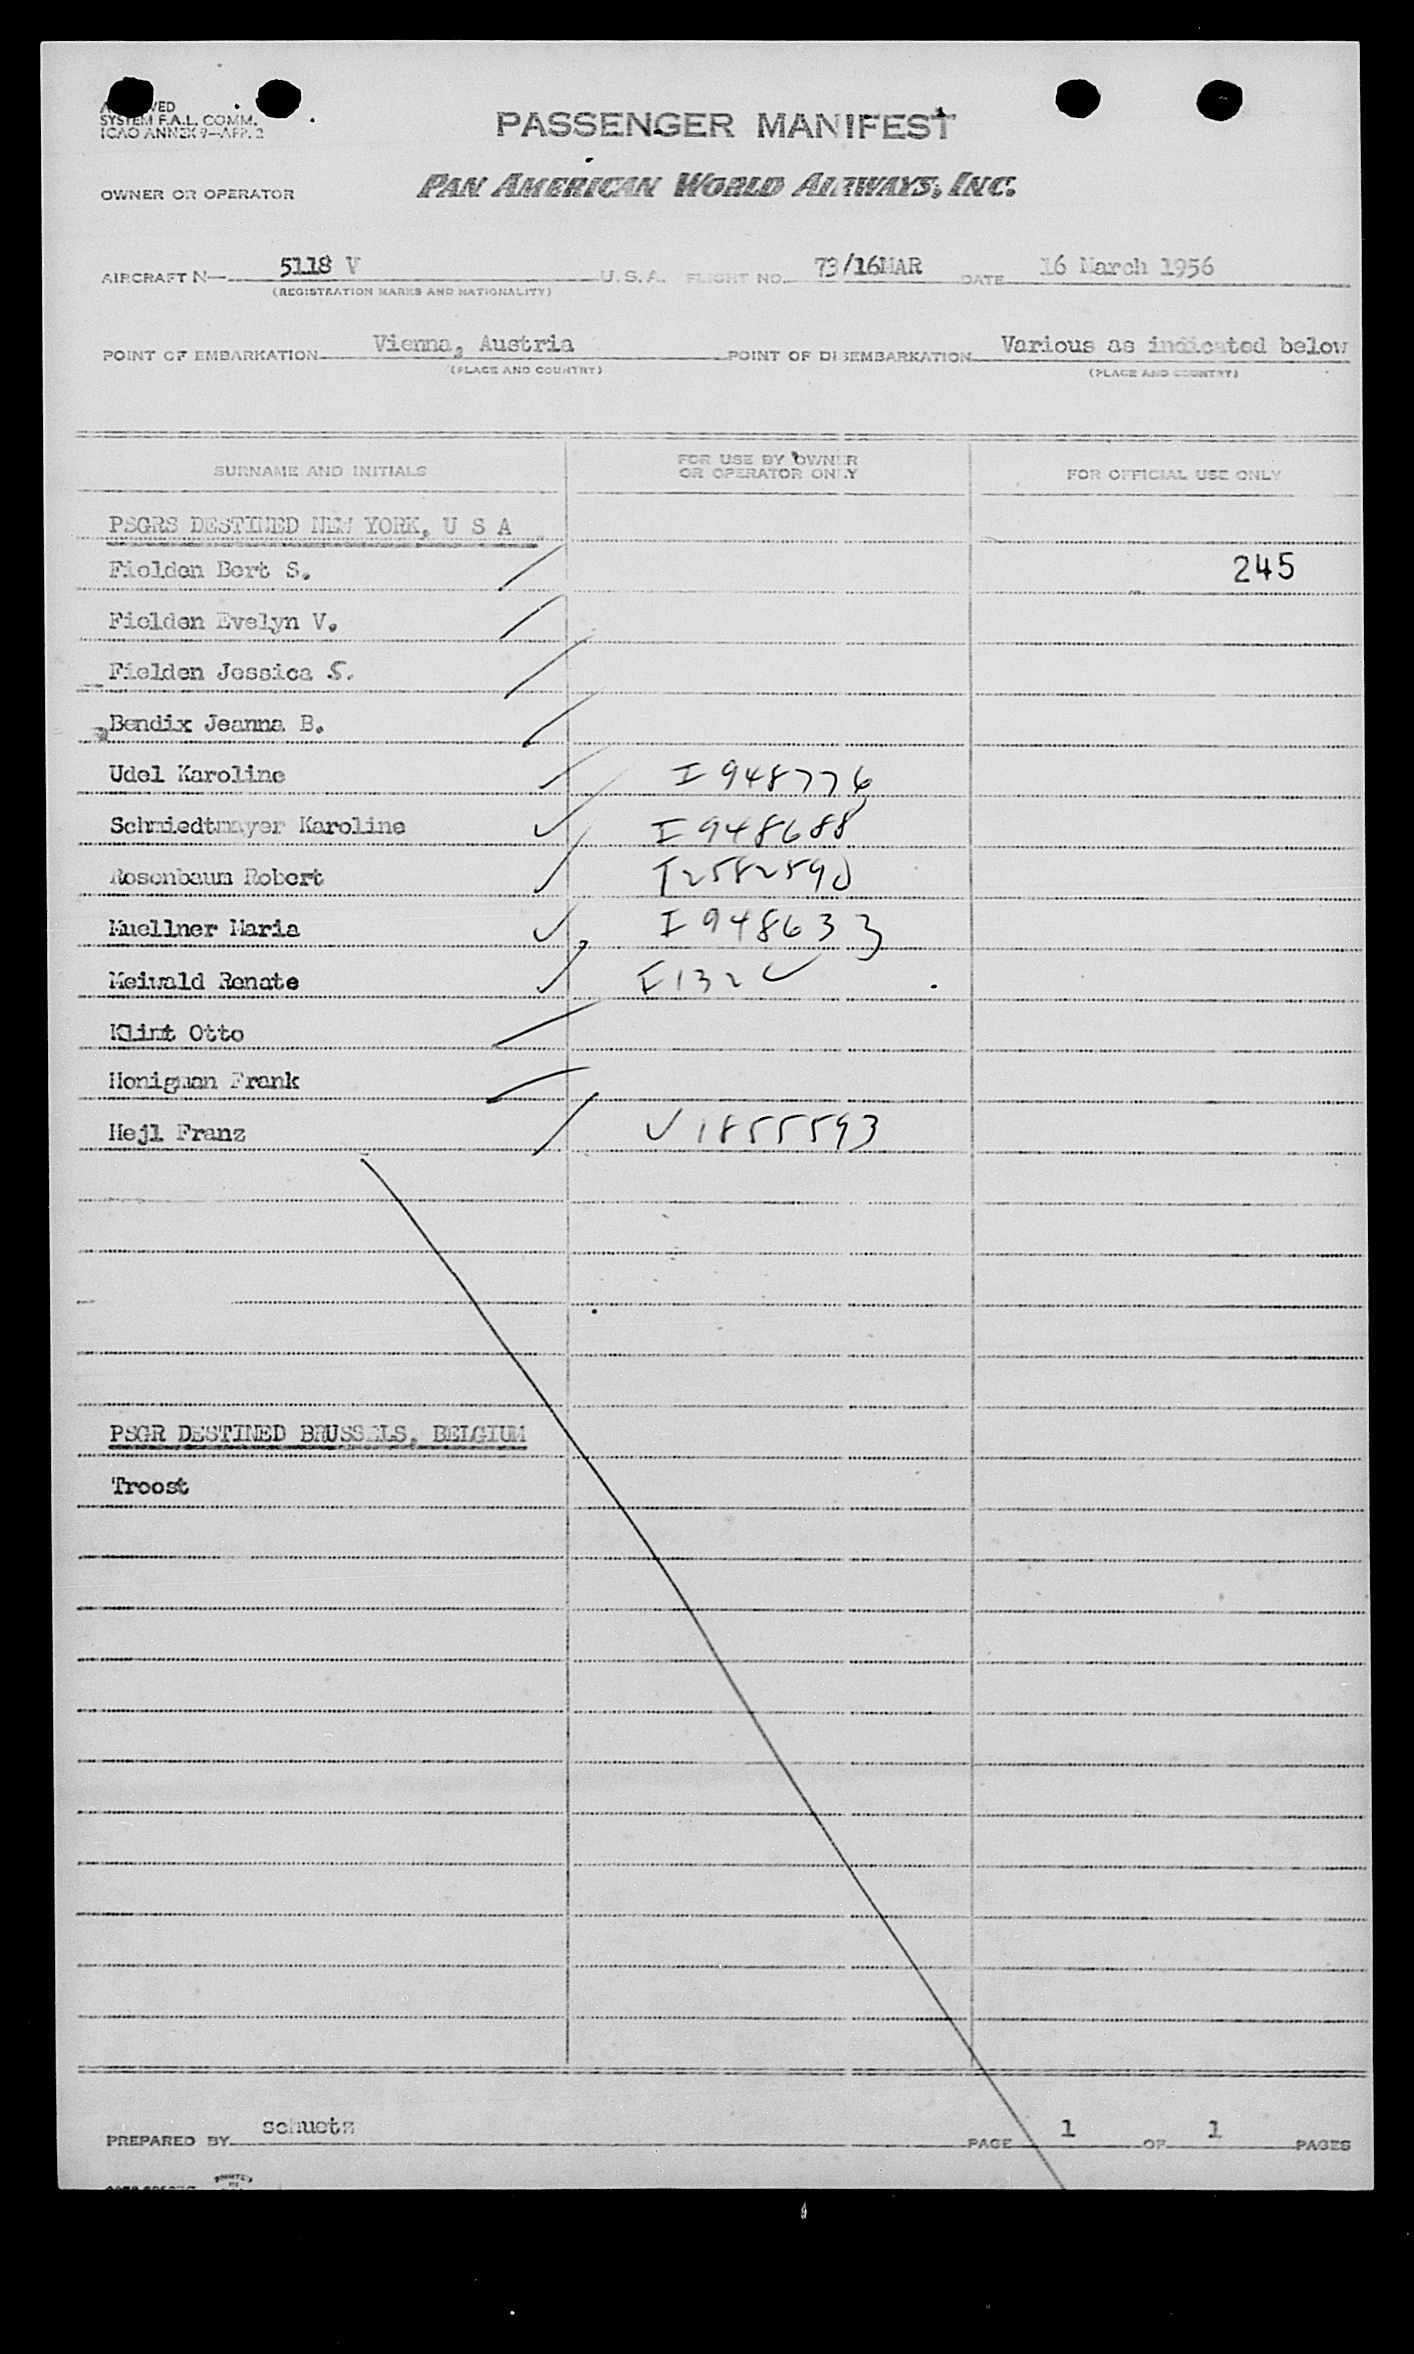 SYSTEM F.A.L. COMM.
ICAO ANNEX 9—APP. 2
PASSENGER MANIFEST
OWNER OR OPERATOR PAN AMERICAN WORLD AIRWAYS, INC.
AIRCRAFT N— 5118 V U.S.A. FLIGHT NO. 73/16MAR DATE 16 March 1956
(REGISTRATION MARKS AND NATIONALITY)
POINT OF EMBARKATION Vienna, Austria POINT OF DISEMBARKATION Various as indicated below
(PLACE AND COUNTRY) (PLACE AND COUNTRY)
SURNAME AND INITIALS FOR USE BY OWNER OR OPERATOR ONLY FOR OFFICIAL USE ONLY
PSGRS DESTINED NEW YORK, U S A
Fielden Bert S. 245
Fielden Evelyn V.
Fielden Jessica S.
Bendix Jeanna B.
Udel Karoline I 948776
Schmiedtmayer Karoline I 948688
Rosenbaum Robert I2582590
Muellner Maria I 948633
Meiwald Renate I132
Klimt Otto
Honigman Frank
Hejl Franz V1855593
PSGR DESTINED BRUSSELS, BELGIUM
Troost
PREPARED BY schuetz PAGE 1 OF 1 PAGES